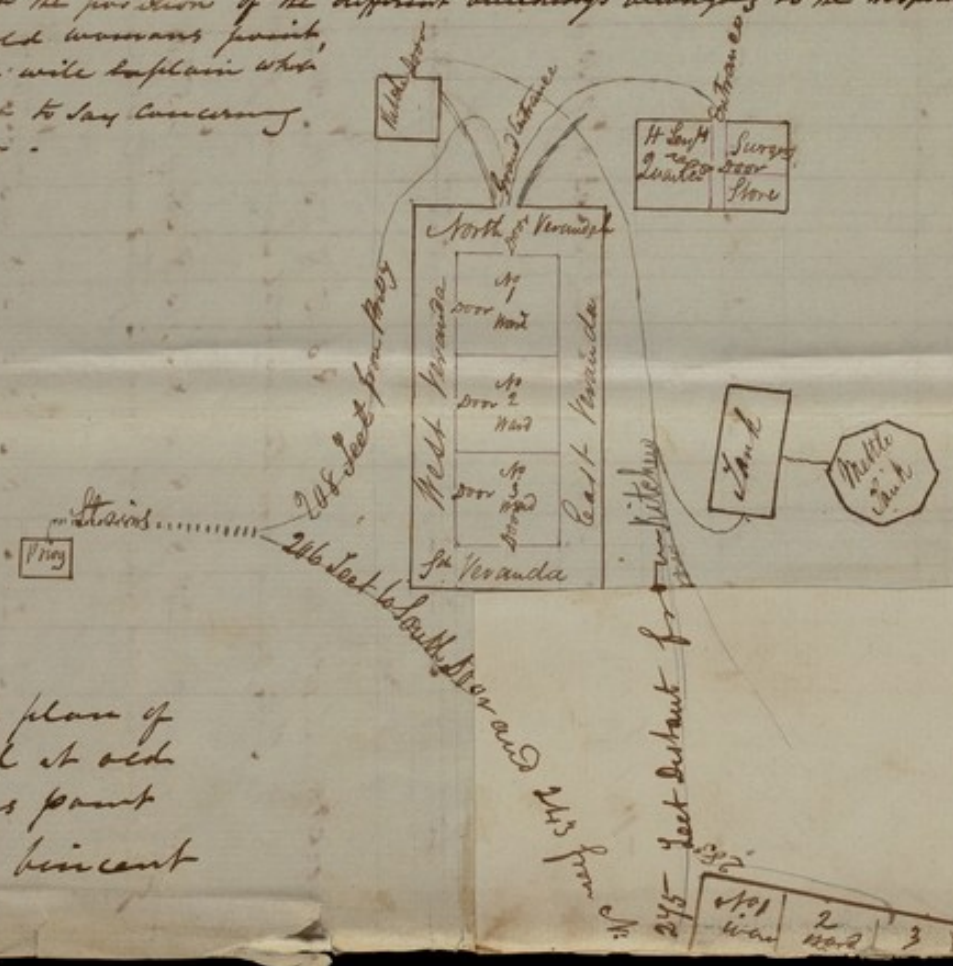 the position of the different buildings belonging to the
old womans point,
will explain what
to say concerning
Door
Grand Entrance
Entrance
H Sergt
Quarters
Surgery
Door
Store
North Verandah
Door
No
1
Ward
Door
No
2
Ward
Door
No
3
Ward
Door
Door
West Veranda
East Veranda
Sth Veranda
208 feet from Privy
Stairs
Privy
206 feet to South Door and 243 feet
Tank
Mettle
Tank
245 feet Distant from Kitchen
plan of
at old
point
Vincent
No 1
Ward
2
Ward
3